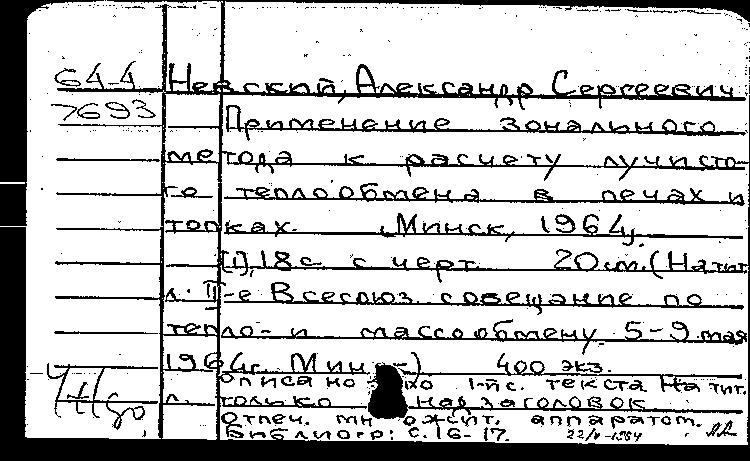 64-4 Невский, Александр Сергеевич
7693 Применение зонального
метода к расчету лучисто-
го теплообмена в печах и
топках. Минск, 1964.
[1], 18 с. с черт. 20 см. (На тит.
л.: II-е Всесоюз. совещание по
тепло- и массообмену. 5-9 мая
1964 г. Минск) 400 экз.
Описано по 1-й с. текста. На тит.
л. только надзаголовок
Отпеч. множит. аппаратом.
Библиогр: с. 16-17.
22/V-1964